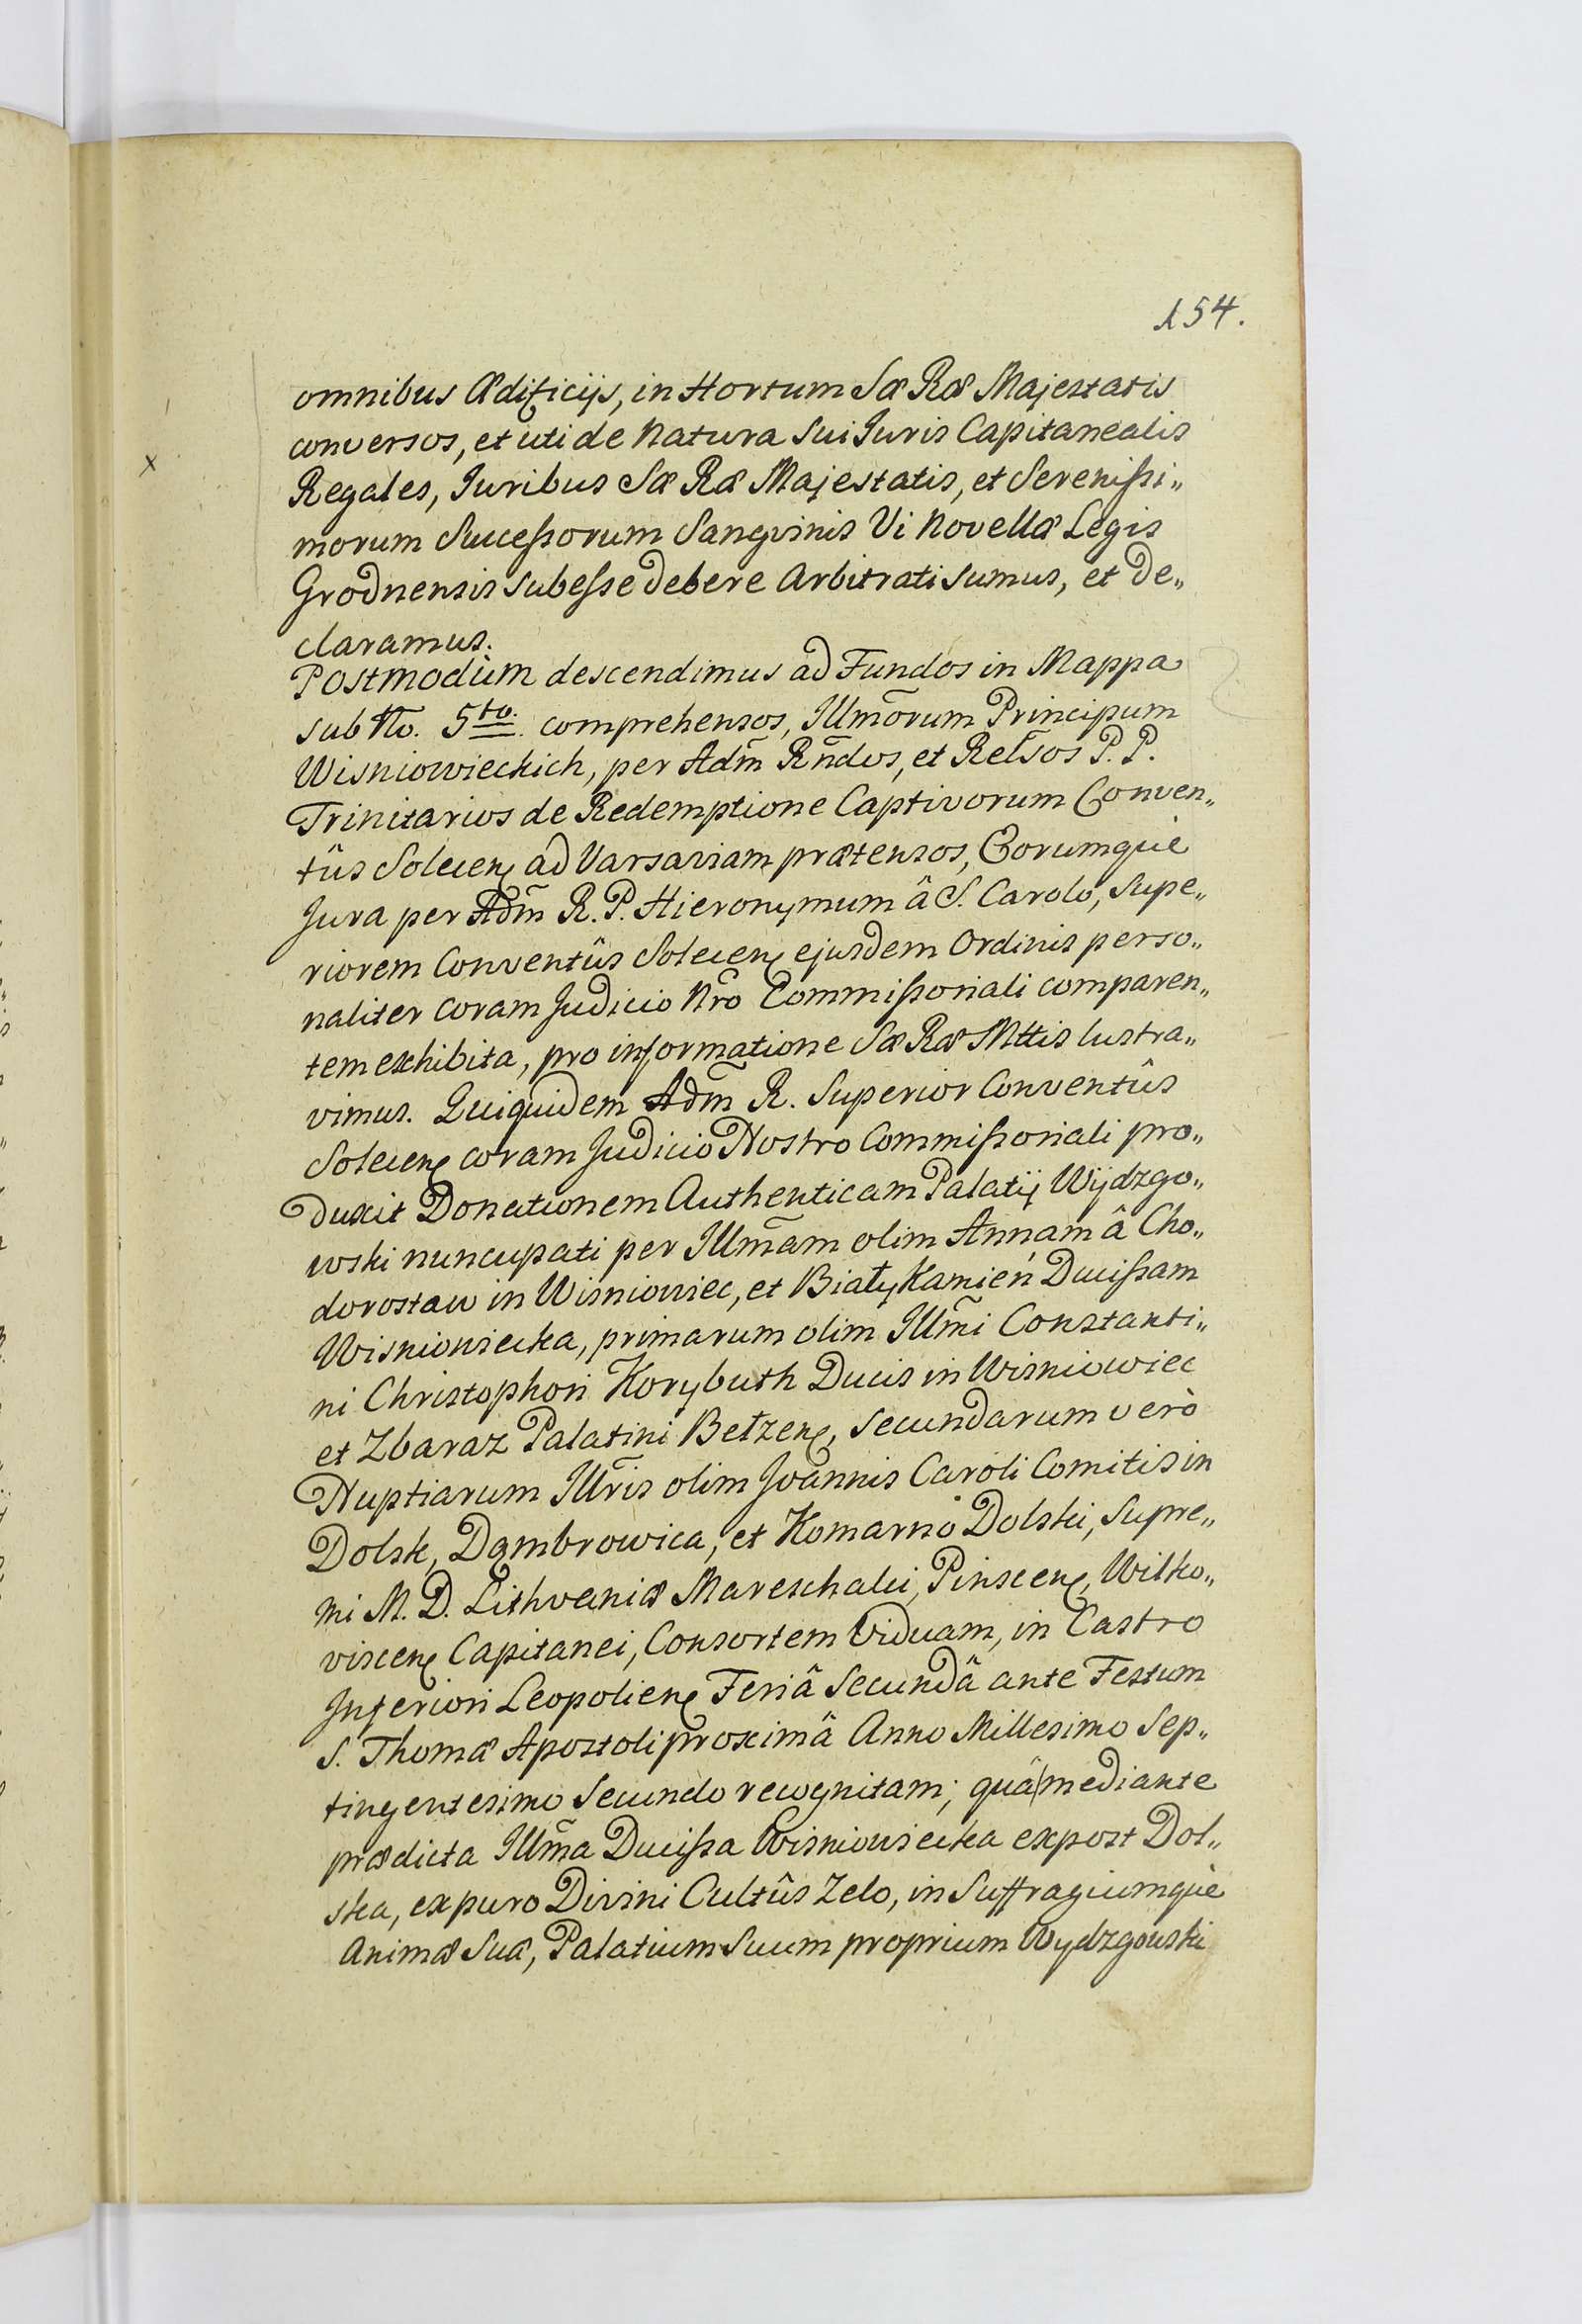 154.
omnibus Ædificijs, in Hortum Sæ Ræ Majestatis
conversos, et uti de Natura Sui Juris Capitanealis
Regales, Juribus Sæ Ræ Majestatis, et Serenißi„
morum Succeßorum Sangvinis Vi Novellæ Legis
Grodnensis subeße debere Arbitrati sumus, et de„
claramus.
Postmodùm descendimus ad Fundos in Mappa
sub No. 5to. comprehensos, Illm̃orum Principum
Wisniowieckich, per Adm̃ Rñdos, et Rel̃sos P. P.
Trinitarios de Redemptione Captivorum Conven„
tûs Solecen̨ ad Varsaviam prætensos, Eorumquè
Jura per Adm̃ R. P. Hieronymum â S. Carolo, Supe„
riorem Conventûs Solecen̨ ejusdem Ordinis perso„
naliter coram Judicio Nr̃o Commißoriali comparen„
tem exhibita, pro informatione Sæ Ræ Mttis lustra„
vimus. Quiquidem Adm̃ R. Superior Conventûs
Solecen̨ coram Judicio Nostro Commißoriali pro„
duxit Donationem Authenticam Palatij Wijdzgo„
wski nuncupati per Illm̃am olim Annam â Cho„
dorostaw in Wisniowiec, et Biały Kamień Ducißam
Wisniowiecka, primarum olim Illm̃i Constanti„
ni Christophori Korybuth Ducis in Wisniowiec
et Zbaraz Palatini Bełzen̨, secundarum verò
Nuptiarum Illr̃is olim Joannis Caroli Comitis in
Dolsk, Dąmbrowica, et Komarno Dolski, Supre„
mi M. D. Lithvaniæ Mareschalci, Pinscen̨, Wilko„
viscen̨ Capitanei, Consortem Viduam, in Castro
Inferiori Leopolien̨ Feriâ Secundâ ante Festum
S. Thomæ Apostoli proximâ Anno Millesimo Sep„
tingentesimo Secundo recognitam; quâ mediante
prædicta Illm̃a Ducißa Wisniowiecka expost Dol„
ska, ex puro Divini Cultûs Zelo, in Suffragiumquè
Animæ Suæ, Palatium Suum proprium Wydzgowski